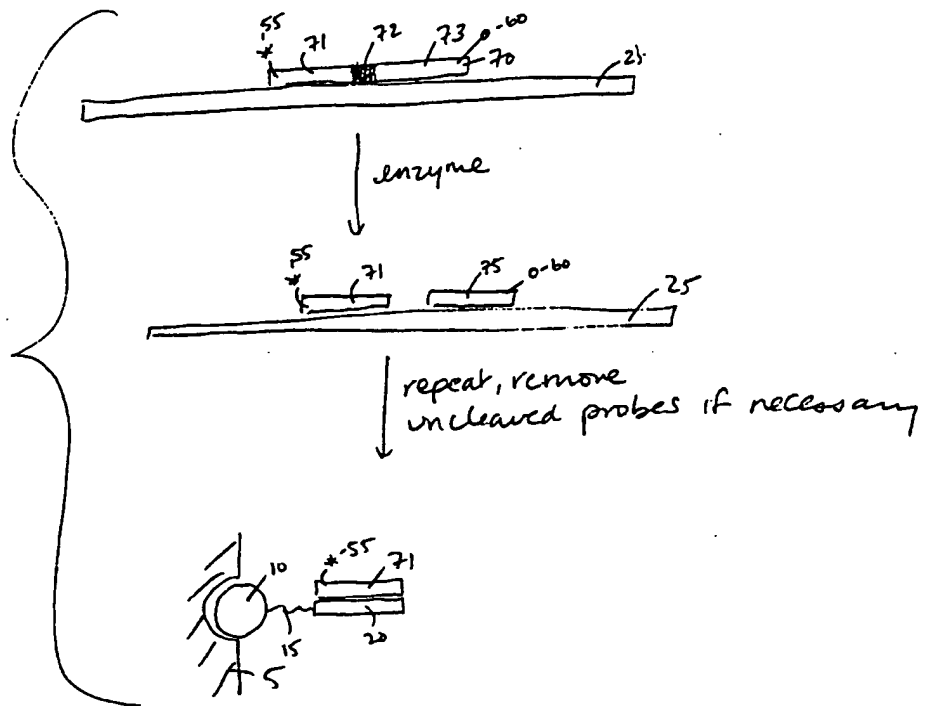 *55 71 72 73 o-60
70 25
enzyme
*55 71 75 o-60
25
repeat, remove
uncleaved probes if necessary
10 *-55 71
15 20
5